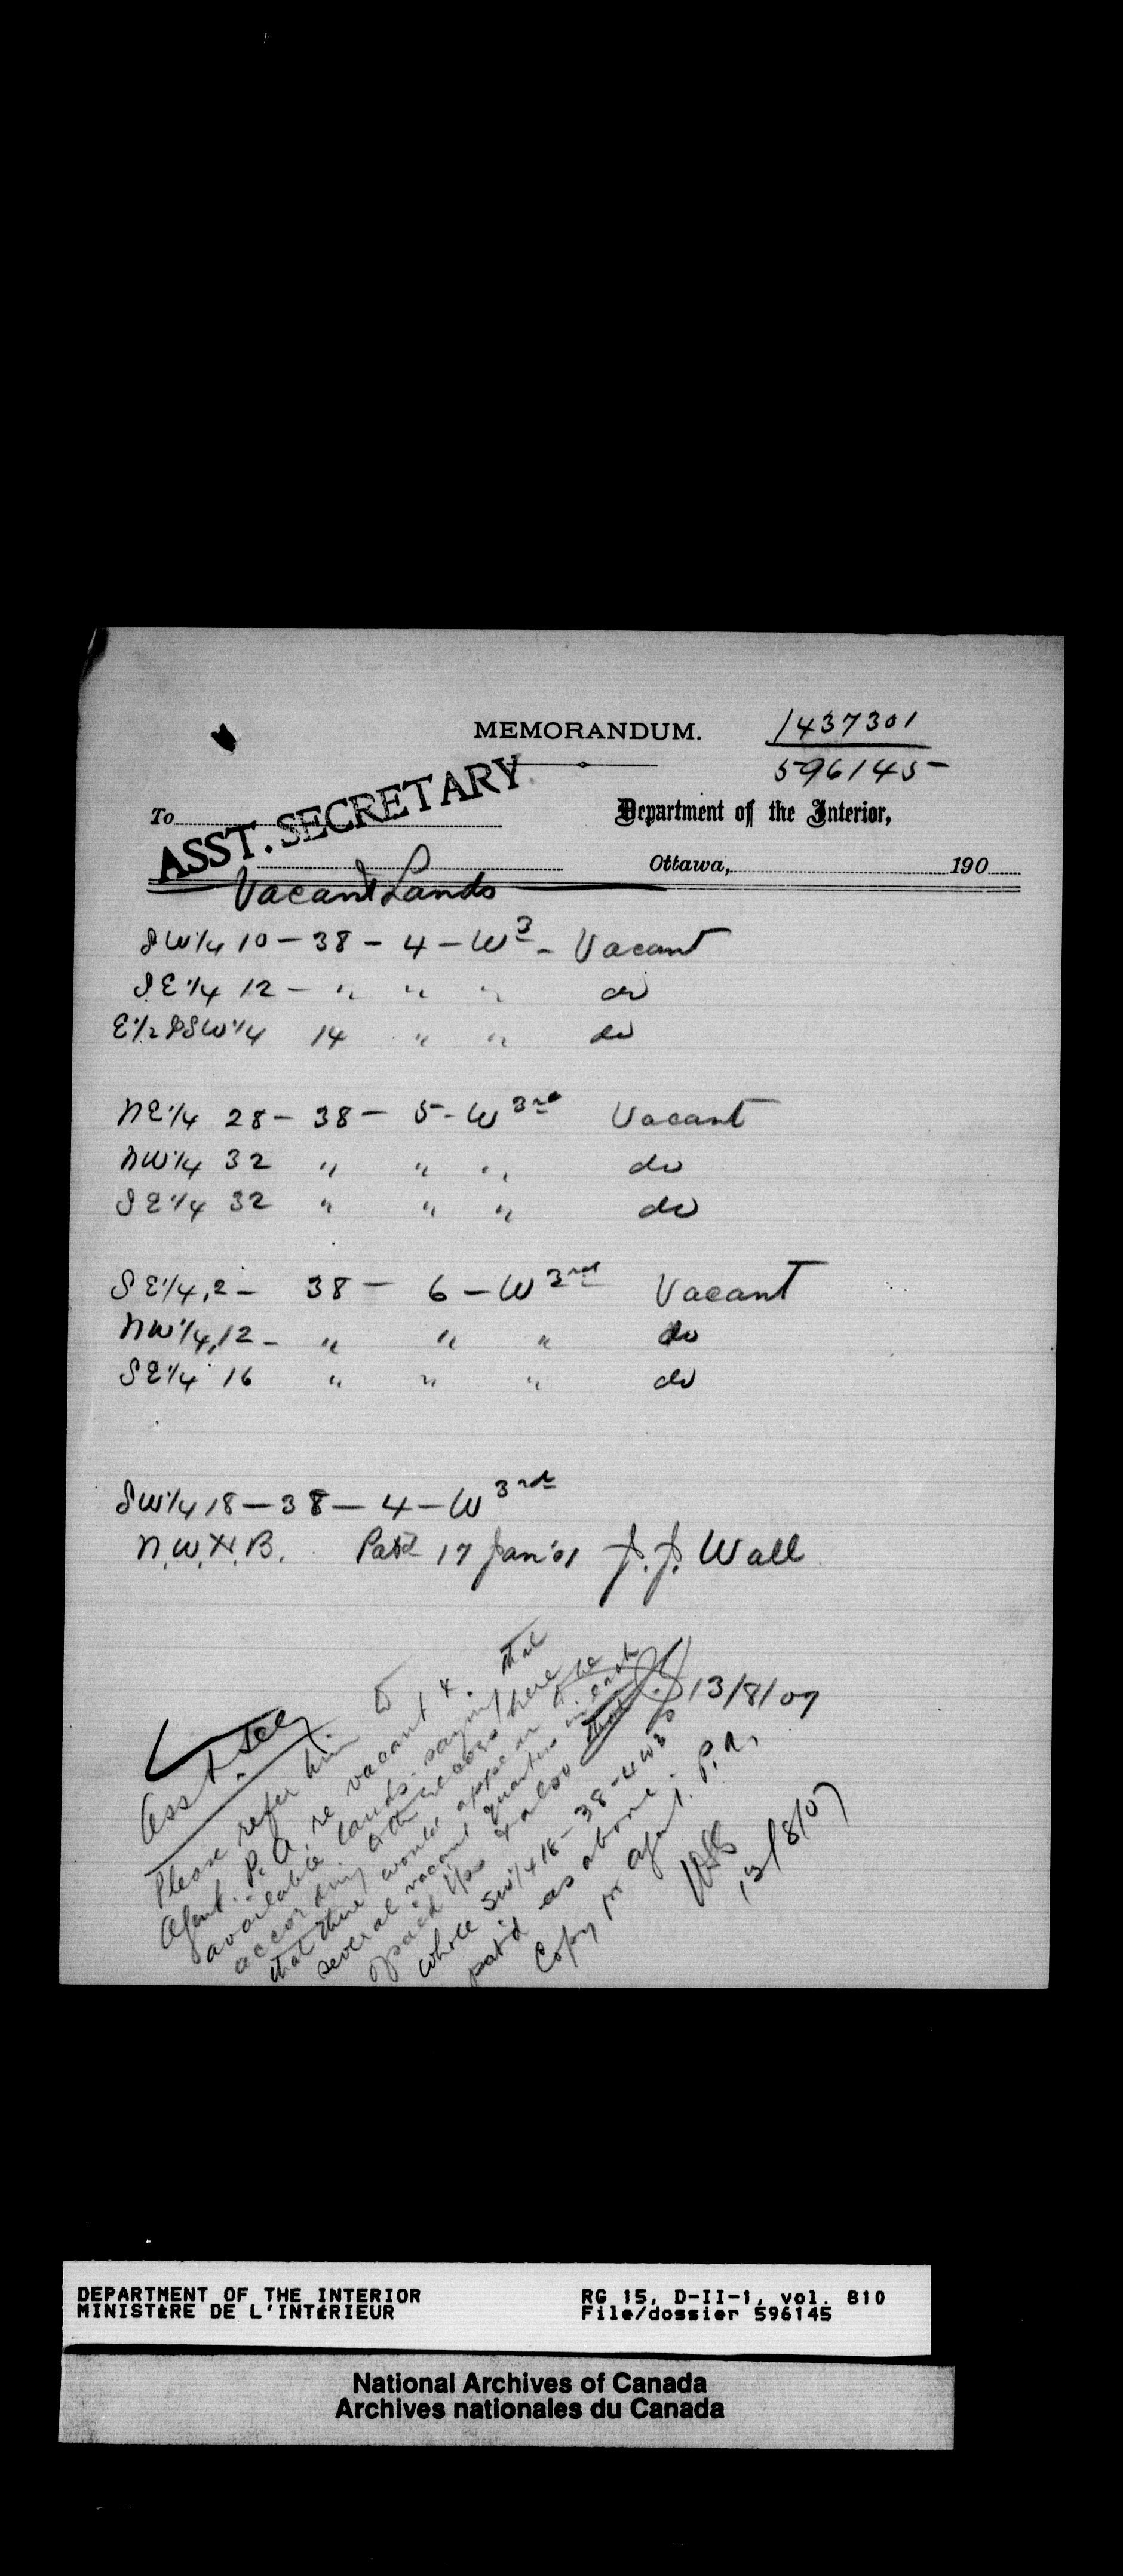 MEMORANDUM.
1437301
596145
To
ASST. SECRETARY
Department of the Interior,
Ottawa, 190
Vacant Lands
SW1/4 10 - 38 - 4 - W3 - Vacant
SE1/4 12 - " " " do
E1/2 SW1/4 14 " " do
NE1/4 28 - 38 - 5 - W 3rd Vacant
NW1/4 32 " " " do
SE1/4 32 " " " do
SE1/4, 2 - 38 - 6 - W 3rd Vacant
NW1/4, 12 - " " " do
SE1/4 16 " " " do
SW1/4 18 - 38 - 4 - W 3rd
N.W.H.B. Patd 17 Jan '01 J.J. Wall
13/8/07
Asst. Secy
Please refer him to
Agent. P.A. re vacant &
available lands. saying that
according to the records here
that there would appear to be
several vacant quarters in each
of said tps & also that
whole SW1/4 18 - 38 - 4 W3
pat'd as above.
Copy for agent. P.A.
13/8/07
DEPARTMENT OF THE INTERIOR
MINISTÈRE DE L'INTÉRIEUR
RG 15, D-II-1, vol. 810
File/dossier 596145
National Archives of Canada
Archives nationales du Canada